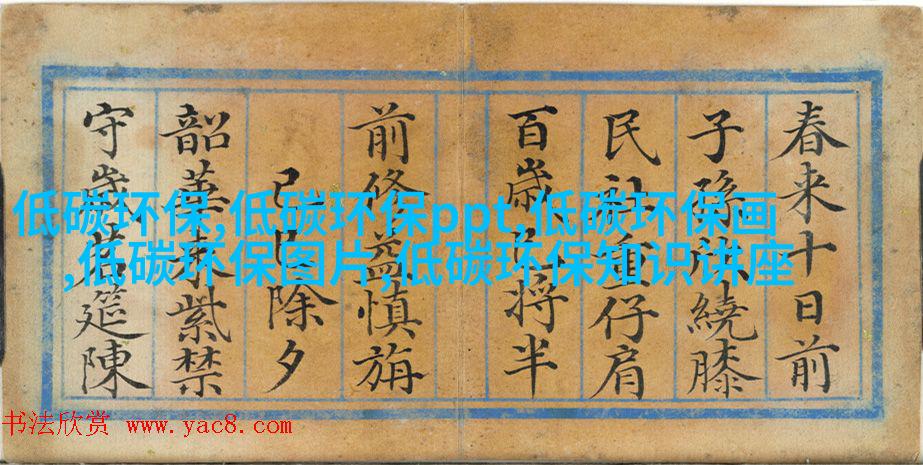 春来十日前
子孫繞膝
民社重仔肩
百歲将半
前修益慎旃
己巳除夕
韶華来紫禁
守歲筵陳
低碳环保,低碳环保ppt 低碳环保画
,低碳环保图片,低碳环保知识讲座
书法欣赏 www.yac8.com